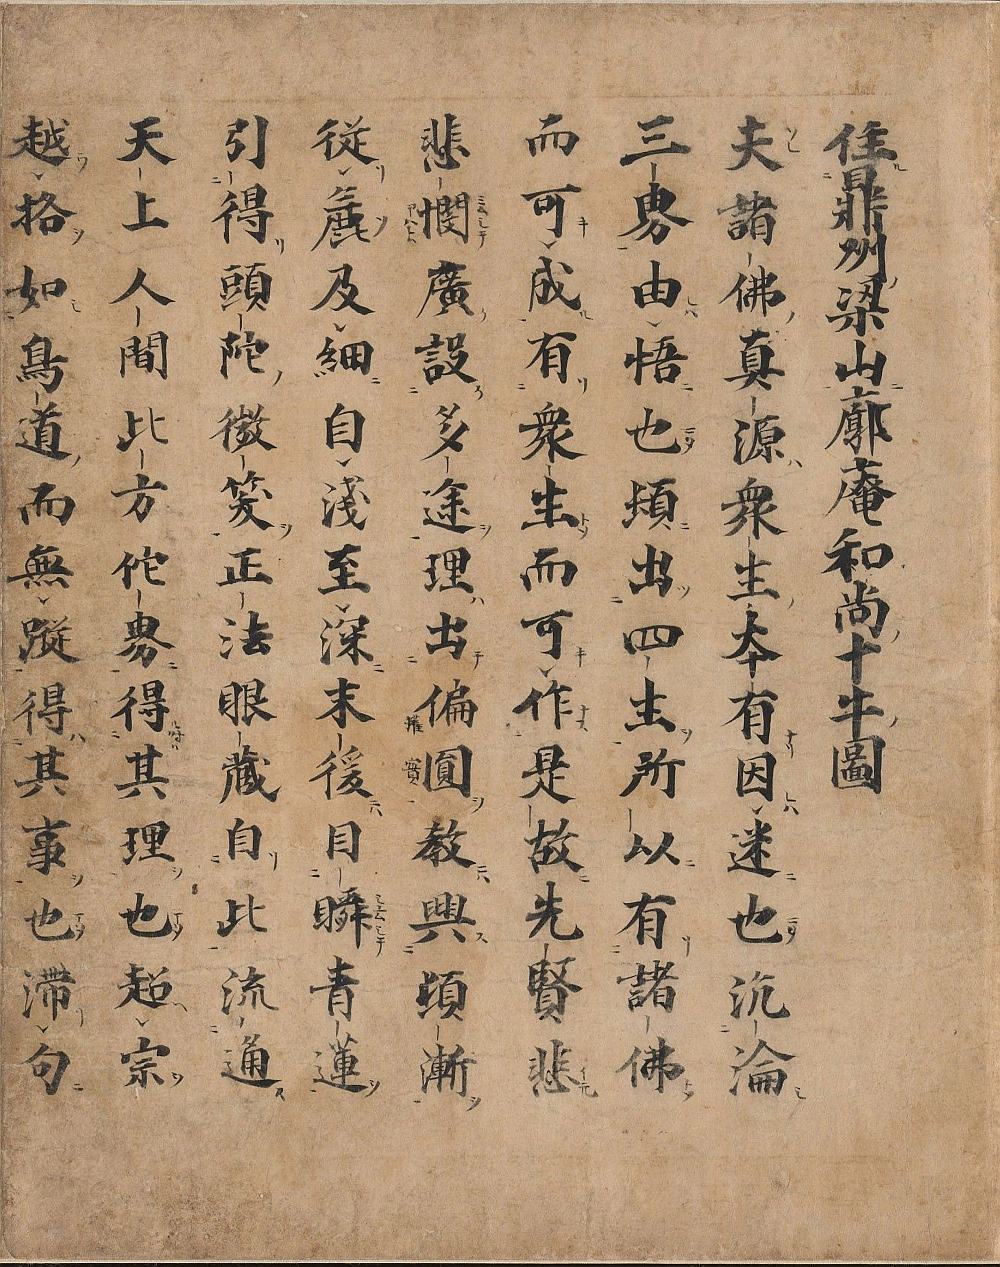 住鼎州梁山廓庵和尚十牛圖
夫諸佛真源衆生本有因迷也沉淪
三界由悟也頓出四生所以有諸佛
而可成有衆生而可作是故先賢悲
悲憫廣設多途理出偏圓教興頓漸
從麁及細自淺至深末後目瞬青蓮
引得頭陀微笑正法眼藏自此流通
天上人間此方佗界得其理也超宗
越格如鳥道而無蹤得其事也滯句